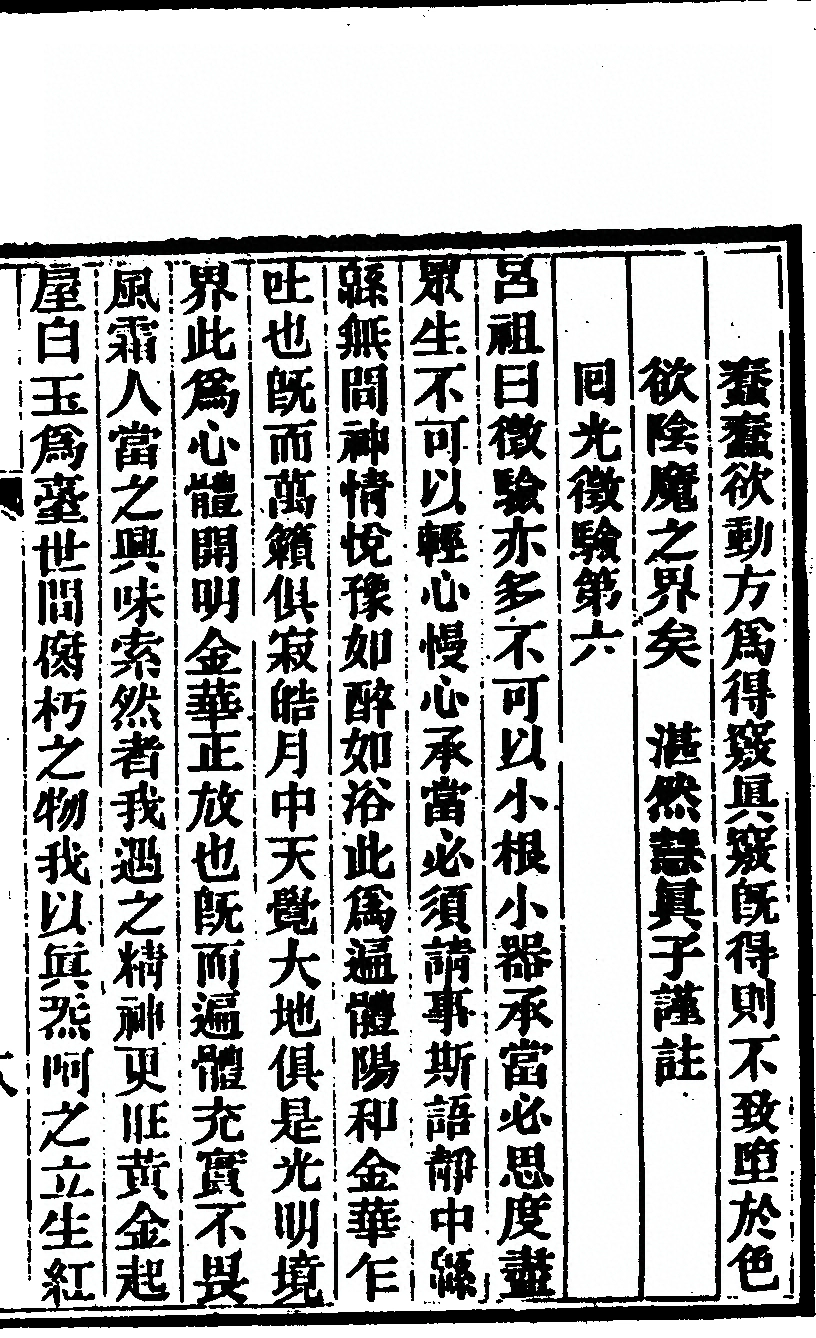 蠢蠢欲動方爲得竅眞竅旣得則不致墮於色
欲陰魔之界矣　湛然慧眞子謹註
回光徵驗第六
呂祖曰徵驗亦多不可以小根小器承當必思度盡
眾生不可以輕心慢心承當必須請事斯語靜中緜
緜無間神情悅豫如醉如浴此爲遍體陽和金華乍
吐也旣而萬籟俱寂皓月中天覺大地俱是光明境
界此爲心體開明金華正放也旣而遍體充實不畏
風霜人當之興味索然者我遇之精神更旺黃金起
屋白玉爲臺世間腐朽之物我以眞炁呵之立生紅